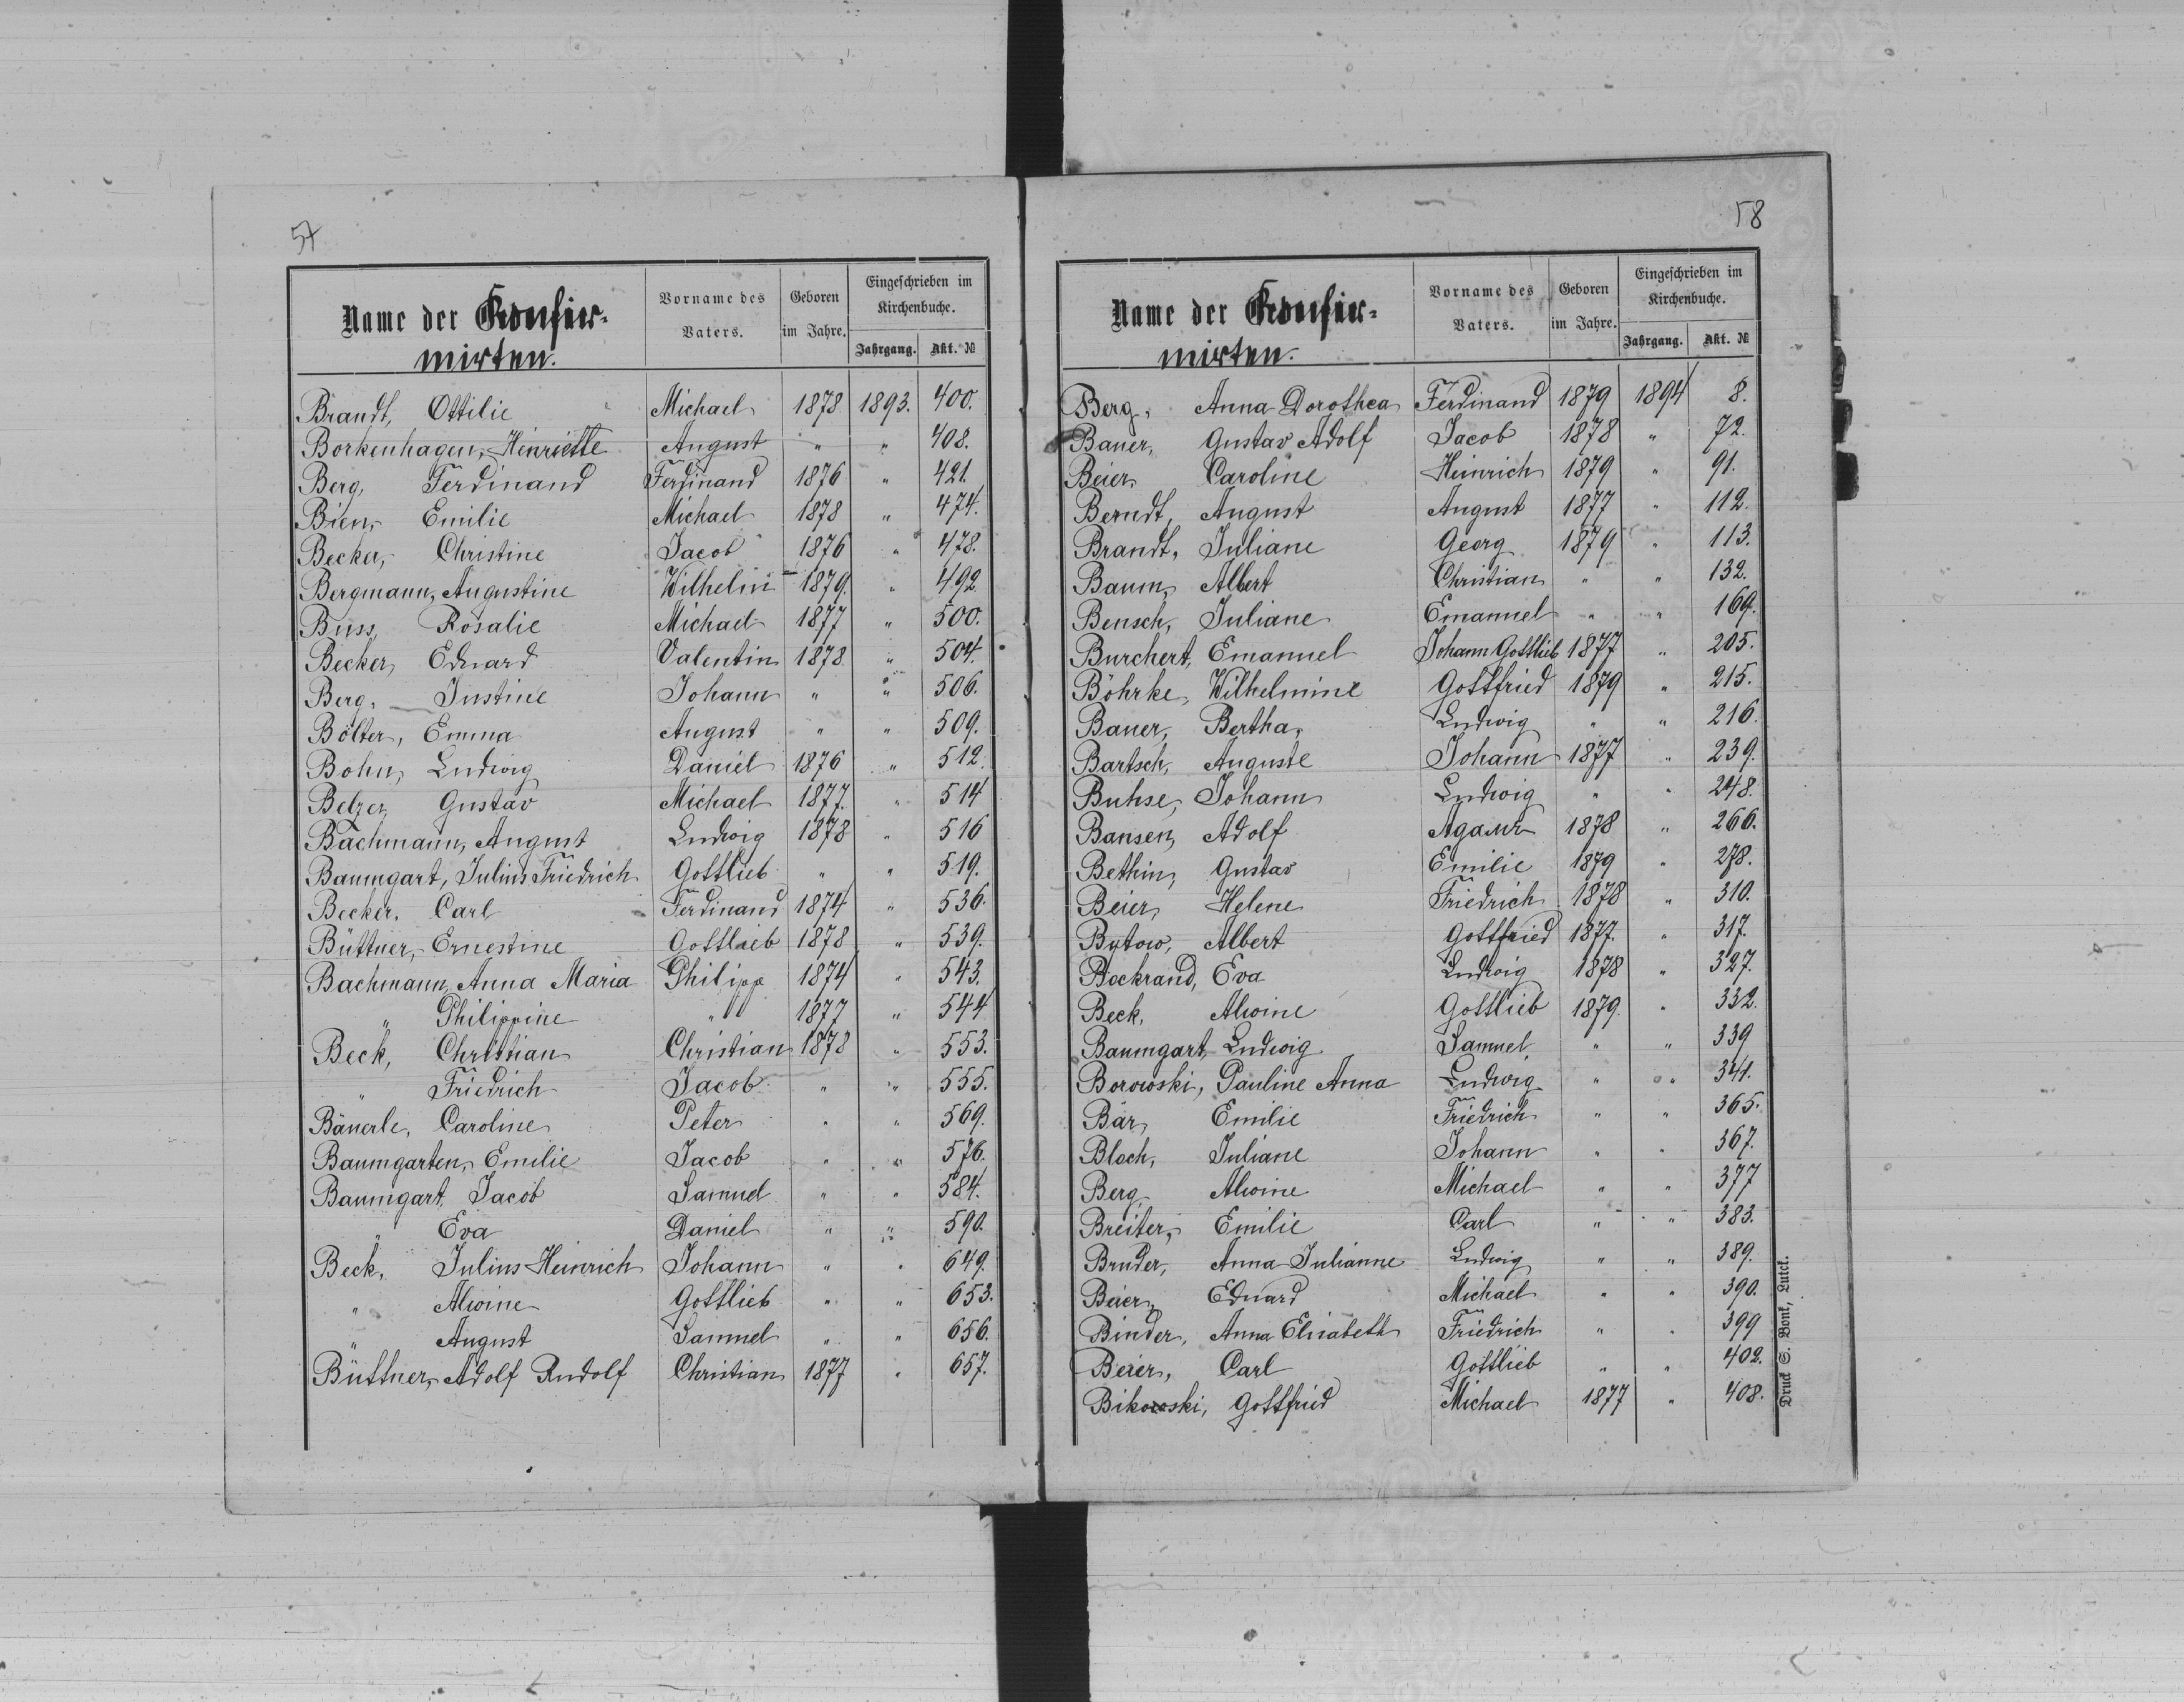 57
Name der Konfir-
mirten.
Vorname des
Vaters.
Geboren
im Jahre.
Eingeschrieben im
Kirchenbuche.
Jahrgang. Akt. №
Brandt, Ottilie Michael 1878 1893. 400.
Borkenhagen, Henriette August " " 408.
Berg, Ferdinand Ferdinand 1876 " 421.
Bien, Emilie Michael 1878 " 474.
Becker, Christine Jacob 1876 " 478.
Bergmann, Augustine Wilhelm 1879. " 492
Buss, Rosalie Michael 1877 " 500.
Becker, Eduard Valentin 1878 " 504.
Berg, Justine Johann " " 506.
Bölter, Emma August " " 509.
Bohn, Ludwig Daniel 1876 " 512.
Belzer, Gustav Michael 1877. " 514
Bachmann, August Ludwig 1878 " 516
Baumgart, Julius Friedrich Gottlieb " " 519.
Becker, Carl Ferdinand 1874 " 536.
Büttner, Ernestine Gottlieb 1878 " 539.
Bachmann, Anna Maria Philipp 1874 " 543.
" Philippine " 1877 " 544
Beck, Christian Christian 1878 " 553.
" Friedrich Jacob " " 555.
Bäuerle, Caroline Peter " " 569.
Baumgarten, Emilie Jacob " " 576.
Baumgart, Jacob Samuel " " 584.
" Eva Daniel " " 590.
Beck, Julius Heinrich Johann " " 649.
" Alwine Gottlieb " " 653.
" August Samuel " " 656.
Büttner, Adolf Rudolf Christian 1877 " 657.
58
Name der Konfir-
mirten.
Vorname des
Vaters.
Geboren
im Jahre.
Eingeschrieben im
Kirchenbuche.
Jahrgang. Akt. №
Berg, Anna Dorothea Ferdinand 1879 1894 8.
Bauer, Gustav Adolf Jacob 1878 " 72.
Beier, Caroline Heinrich 1879 " 91.
Berndt, August August 1877 " 112.
Brandt, Juliane Georg 1879 " 113.
Baum, Albert Christian " " 132.
Bensch, Juliane Emanuel " " 169.
Burchert, Emanuel Johann Gottlieb 1877 " 205.
Böhrke, Wilhelmine Gottfried 1879 " 215.
Bauer, Bertha, Ludwig " " 216.
Bartsch, Auguste Johann 1877 " 239.
Buhse, Johann Ludwig " " 248.
Bansen, Adolf 1878 " 266.
Bethin, Gustav Emilie 1879 " 278.
Beier, Helene Friedrich 1878 " 310.
Bytow, Albert Gottfried 1877. " 317.
Bockrand, Eva Ludwig 1878 " 327.
Beck, Alwine Gottlieb 1879. " 332.
Baumgart, Ludwig Samuel " " 339
Borowski, Pauline Anna Ludwig " " 341.
Bär, Emilie Friedrich " " 365.
Bloch, Juliane Johann " " 367.
Berg Alwine Michael " " 377
Breiter, Emilie Carl " " 383.
Bruder, Anna Julianne Ludwig " " 389.
Beier, Eduard Michael " " 390.
Binder, Anna Elisabeth Friedrich " " 399
Beier, Carl Gottlieb " " 402.
Bikowski, Gottfried Michael 1877 " 408.
Druck S. Bonk, Luzk.